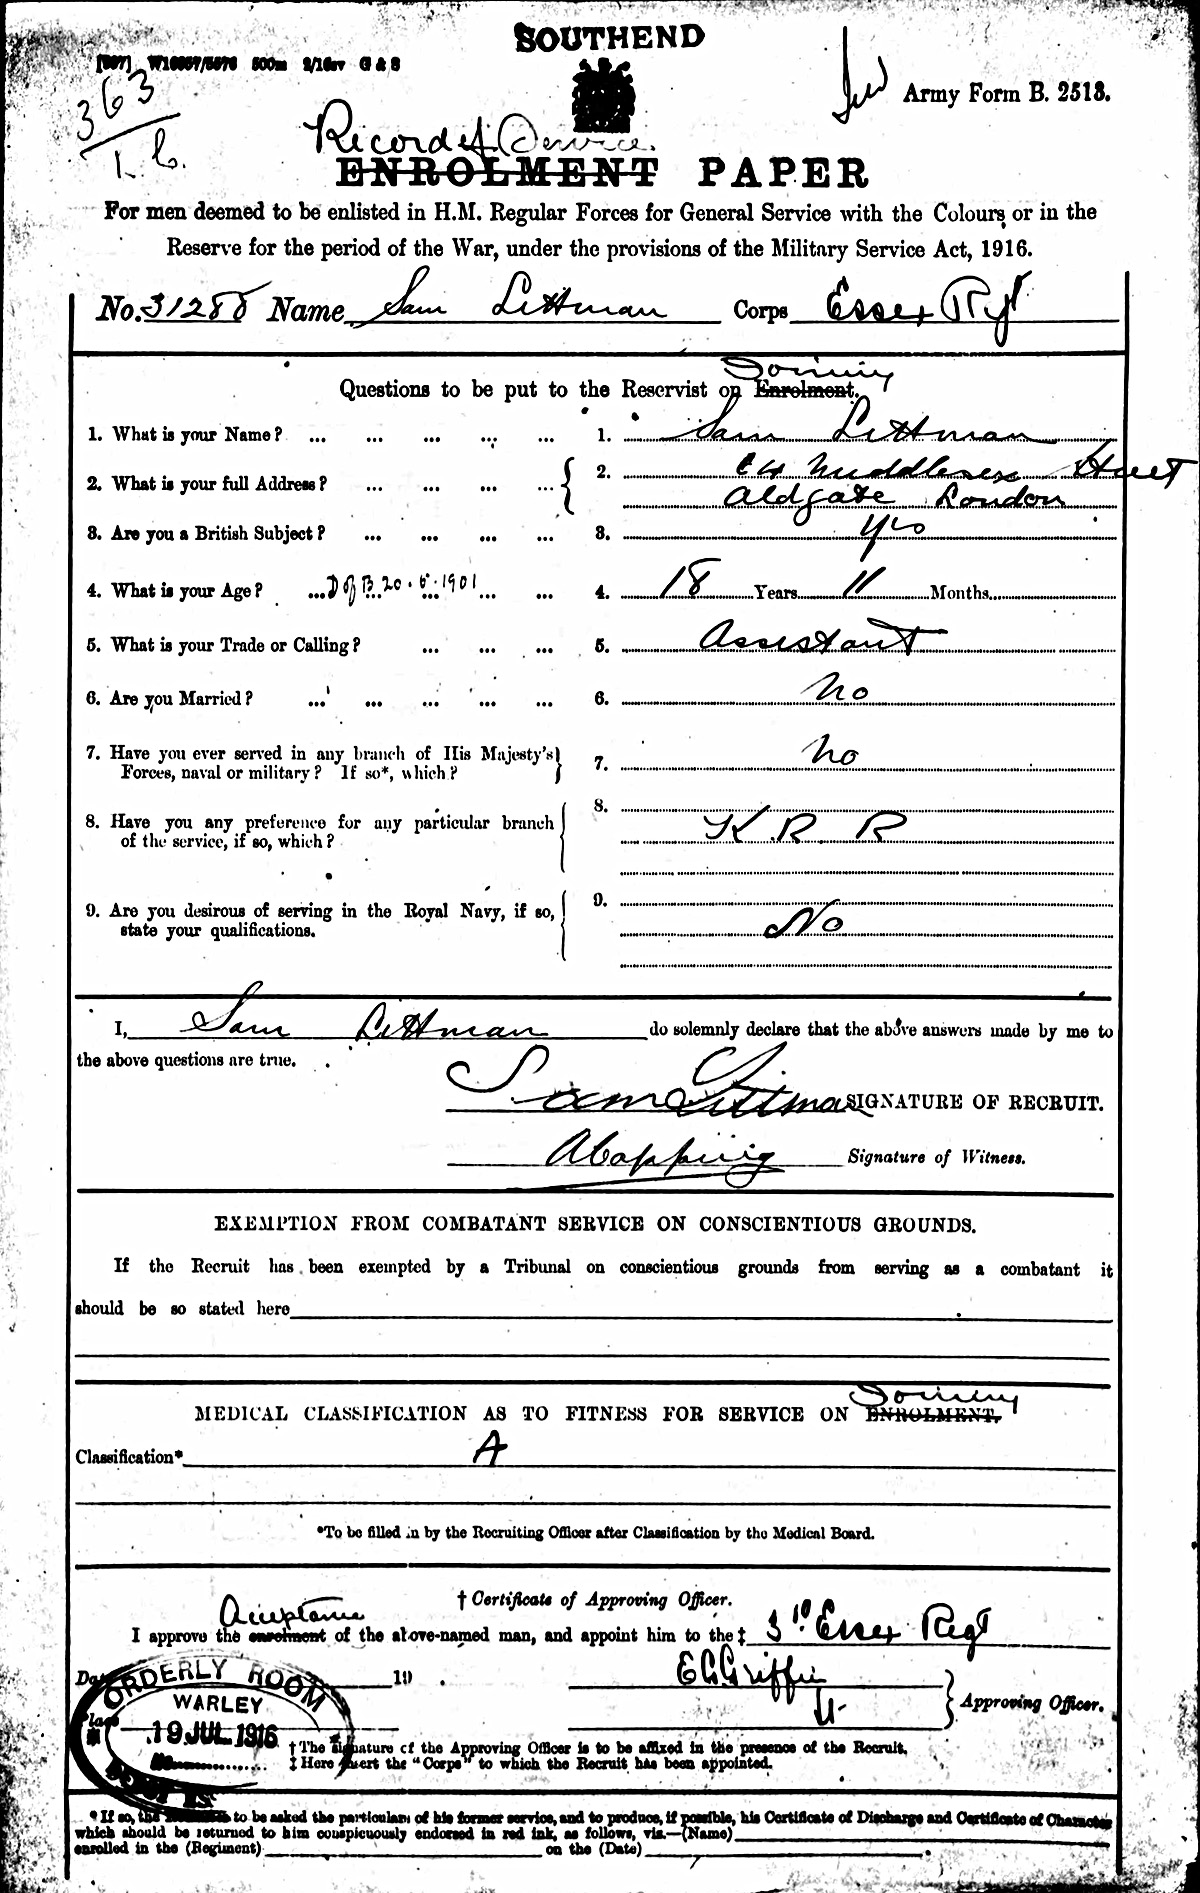 SOUTHEND
[597] W16657/5576 500m 2/16sv G & S
Army Form B. 2513.
363
Record of Service.
ENROLMENT PAPER
For men deemed to be enlisted in H.M. Regular Forces for General Service with the Colours or in the
Reserve for the period of the War, under the provisions of the Military Service Act, 1916.
No. 31288 Name Sam Littman Corps Essex Rgt
Joining
Questions to be put to the Reservist on Enrolment.
1. What is your Name? ... ... ... ... ... 1. Sam Littman
2. What is your full Address? ... ... ... ... 2. 64 Middlesex Street
Aldgate London
3. Are you a British Subject? ... ... ... ... 3. Yes
4. What is your Age? ... D of B 20.5.1901 ... ... 4. 18 Years 11 Months
5. What is your Trade or Calling? ... ... ... 5. Assistant
6. Are you Married? ... ... ... ... ... 6. No
7. Have you ever served in any branch of His Majesty's
Forces, naval or military? If so*, which? 7. No
8. Have you any preference for any particular branch
of the service, if so, which? 8. K R R
9. Are you desirous of serving in the Royal Navy, if so,
state your qualifications. 9. No
I, Sam Littman do solemnly declare that the above answers made by me to
the above questions are true.
Sam Littman SIGNATURE OF RECRUIT.
Signature of Witness.
EXEMPTION FROM COMBATANT SERVICE ON CONSCIENTIOUS GROUNDS.
If the Recruit has been exempted by a Tribunal on conscientious grounds from serving as a combatant it
should be so stated here
Joining
MEDICAL CLASSIFICATION AS TO FITNESS FOR SERVICE ON ENROLMENT.
Classification* A
*To be filled in by the Recruiting Officer after Classification by the Medical Board.
† Certificate of Approving Officer.
Acceptance
I approve the enrolment of the above-named man, and appoint him to the ‡ 3rd Essex Regt
Date 19
E C Griffin
Lt
Approving Officer.
Place
ORDERLY ROOM
WARLEY
19 JUL 1916
† The signature of the Approving Officer is to be affixed in the presence of the Recruit.
‡ Here insert the "Corps" to which the Recruit has been appointed.
* If so, the to be asked the particulars of his former service, and to produce, if possible, his Certificate of Discharge and Certificate of Character
which should be returned to him conspicuously endorsed in red ink, as follows, viz.—(Name)
enrolled in the (Regiment) on the (Date)